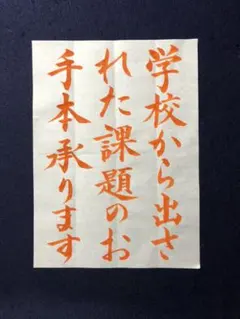 学校から出さ
れた課題のお
手本承ります